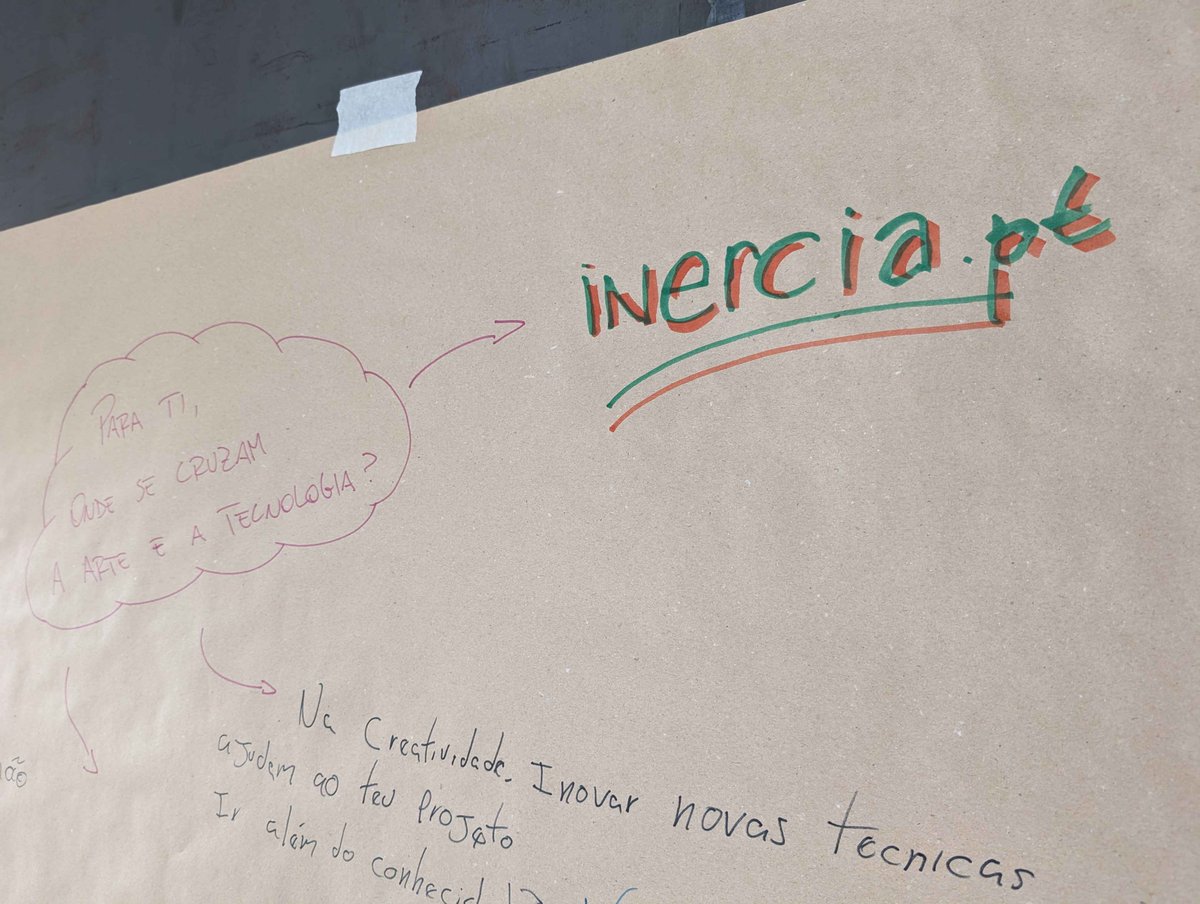 inercia.pt
PARA TI,
ONDE SE CRUZAM
A ARTE E A TECNOLOGIA?
Na Creatividade. Inovar novas tecnicas
ajudem ao teu Projeto
Ir além do conhecid
ão